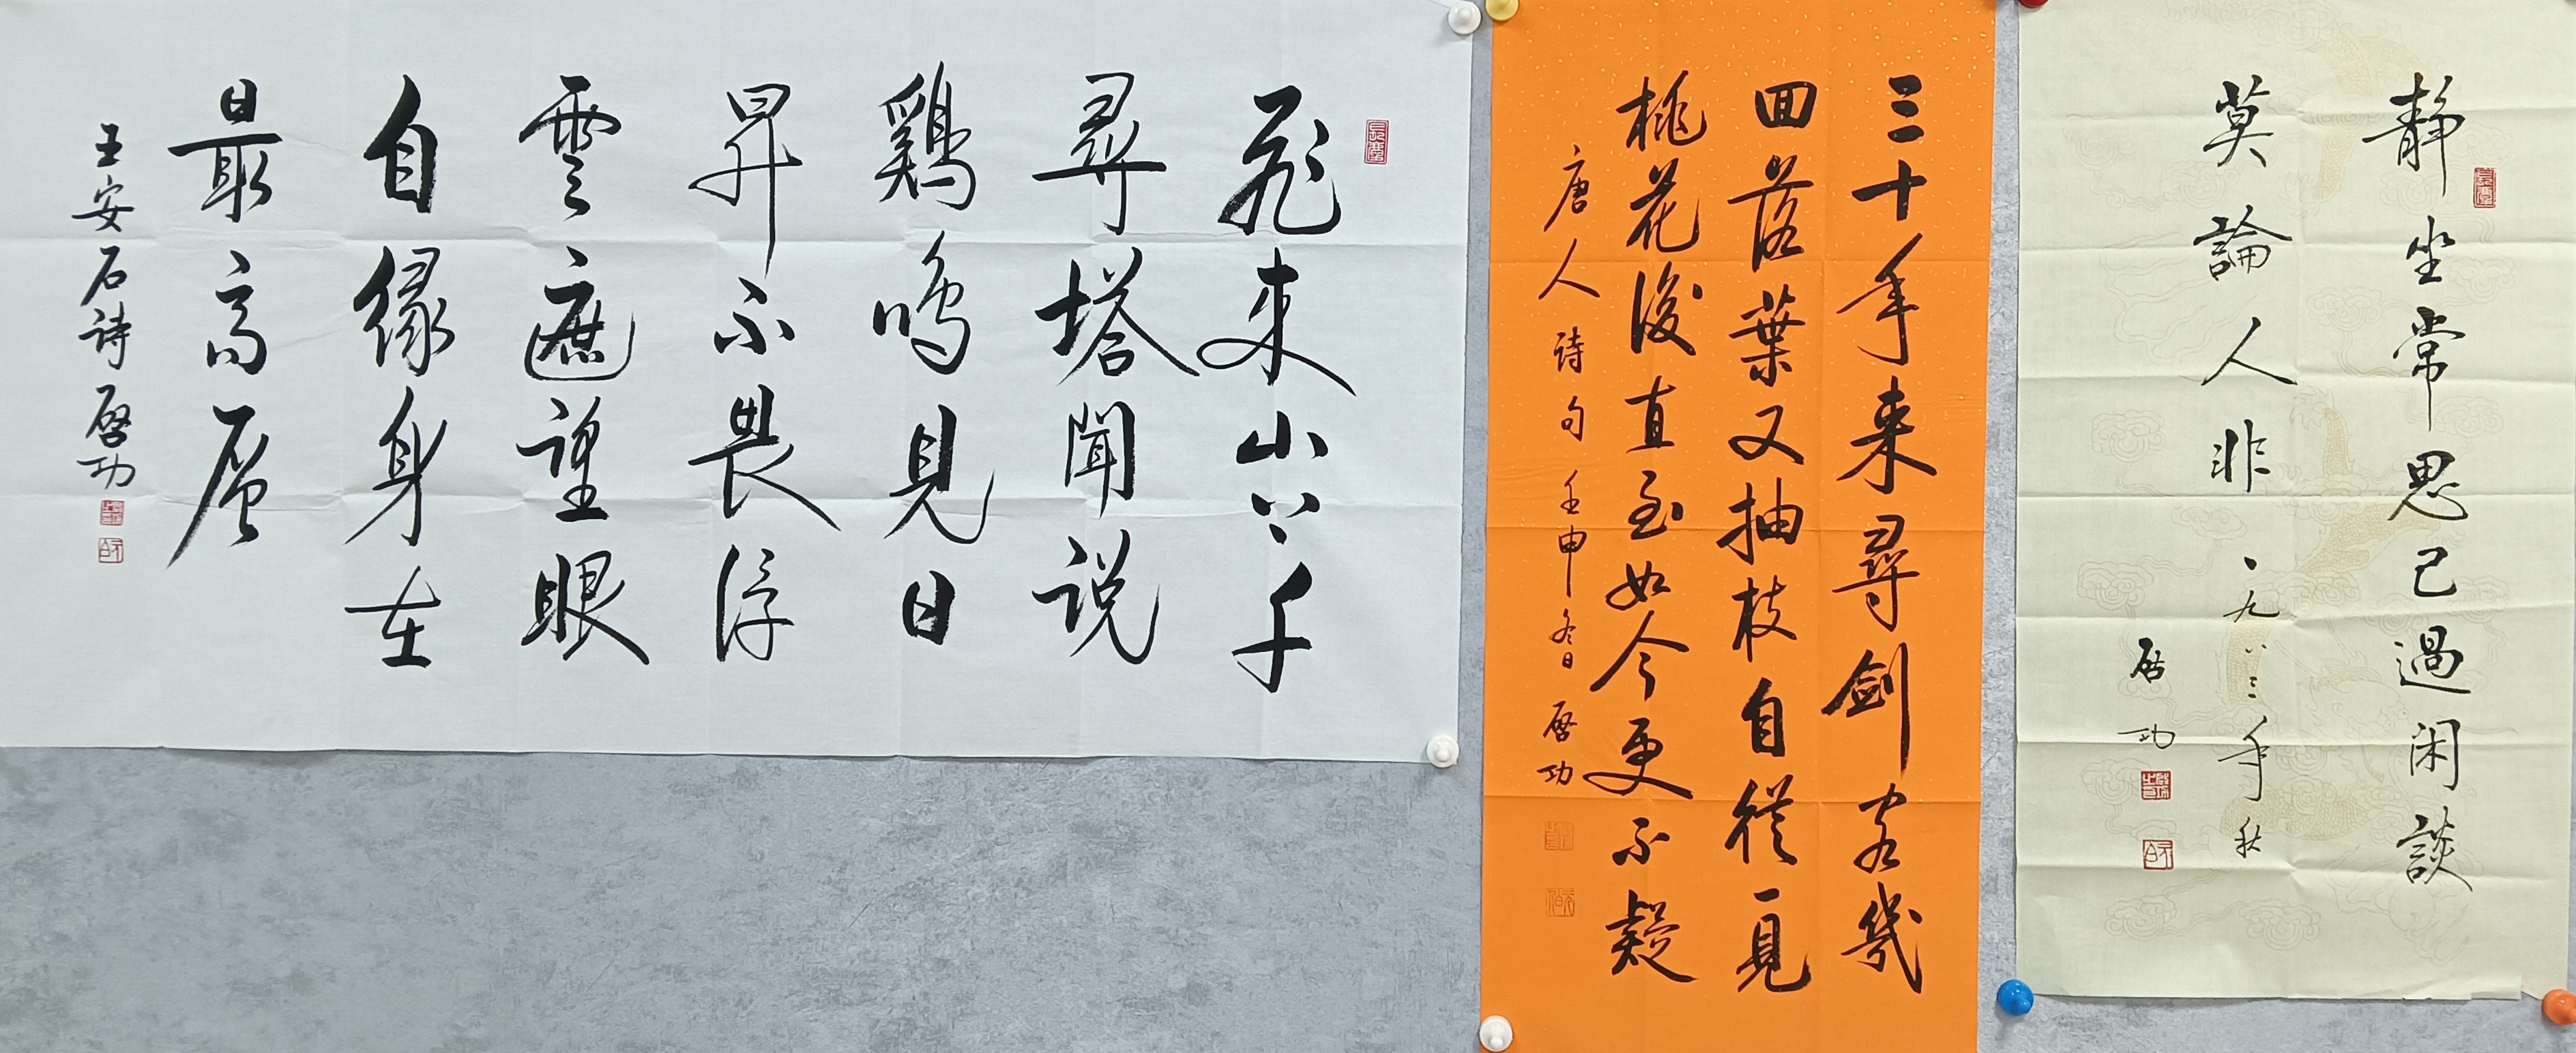 静坐常思己過闲談
莫論人非
一九八三年秋
启功
三十年来尋劍客幾
回落葉又抽枝自從一見
桃花後直至如今更不疑
唐人詩句壬申冬日啓功
飛来山上千
尋塔聞説
鷄鳴見日
昇不畏浮
雲遮望眼
自緣身在
最高層
王安石詩啓功